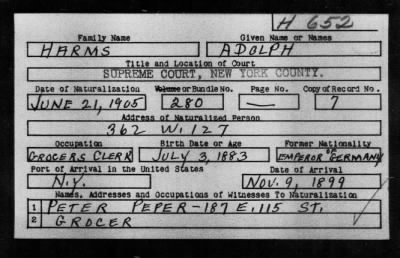 H 652
Family Name Given Name or Names
HARMS ADOLPH
Title and Location of Court
SUPREME COURT, NEW YORK COUNTY.
Date of Naturalization Volume or Bundle No. Page No. Copy of Record No.
JUNE 21, 1905 280 — 7
Address of Naturalized Person
362 W. 127
Occupation Birth Date or Age Former Nationality
GROCERS CLERK JULY 3, 1883 EMPEROR OF GERMANY
Port of Arrival in the United States Date of Arrival
N.Y. NOV. 9, 1899
Names, Addresses and Occupations of Witnesses To Naturalization
1 PETER PEPER - 187 E. 115 ST.
2 GROCER